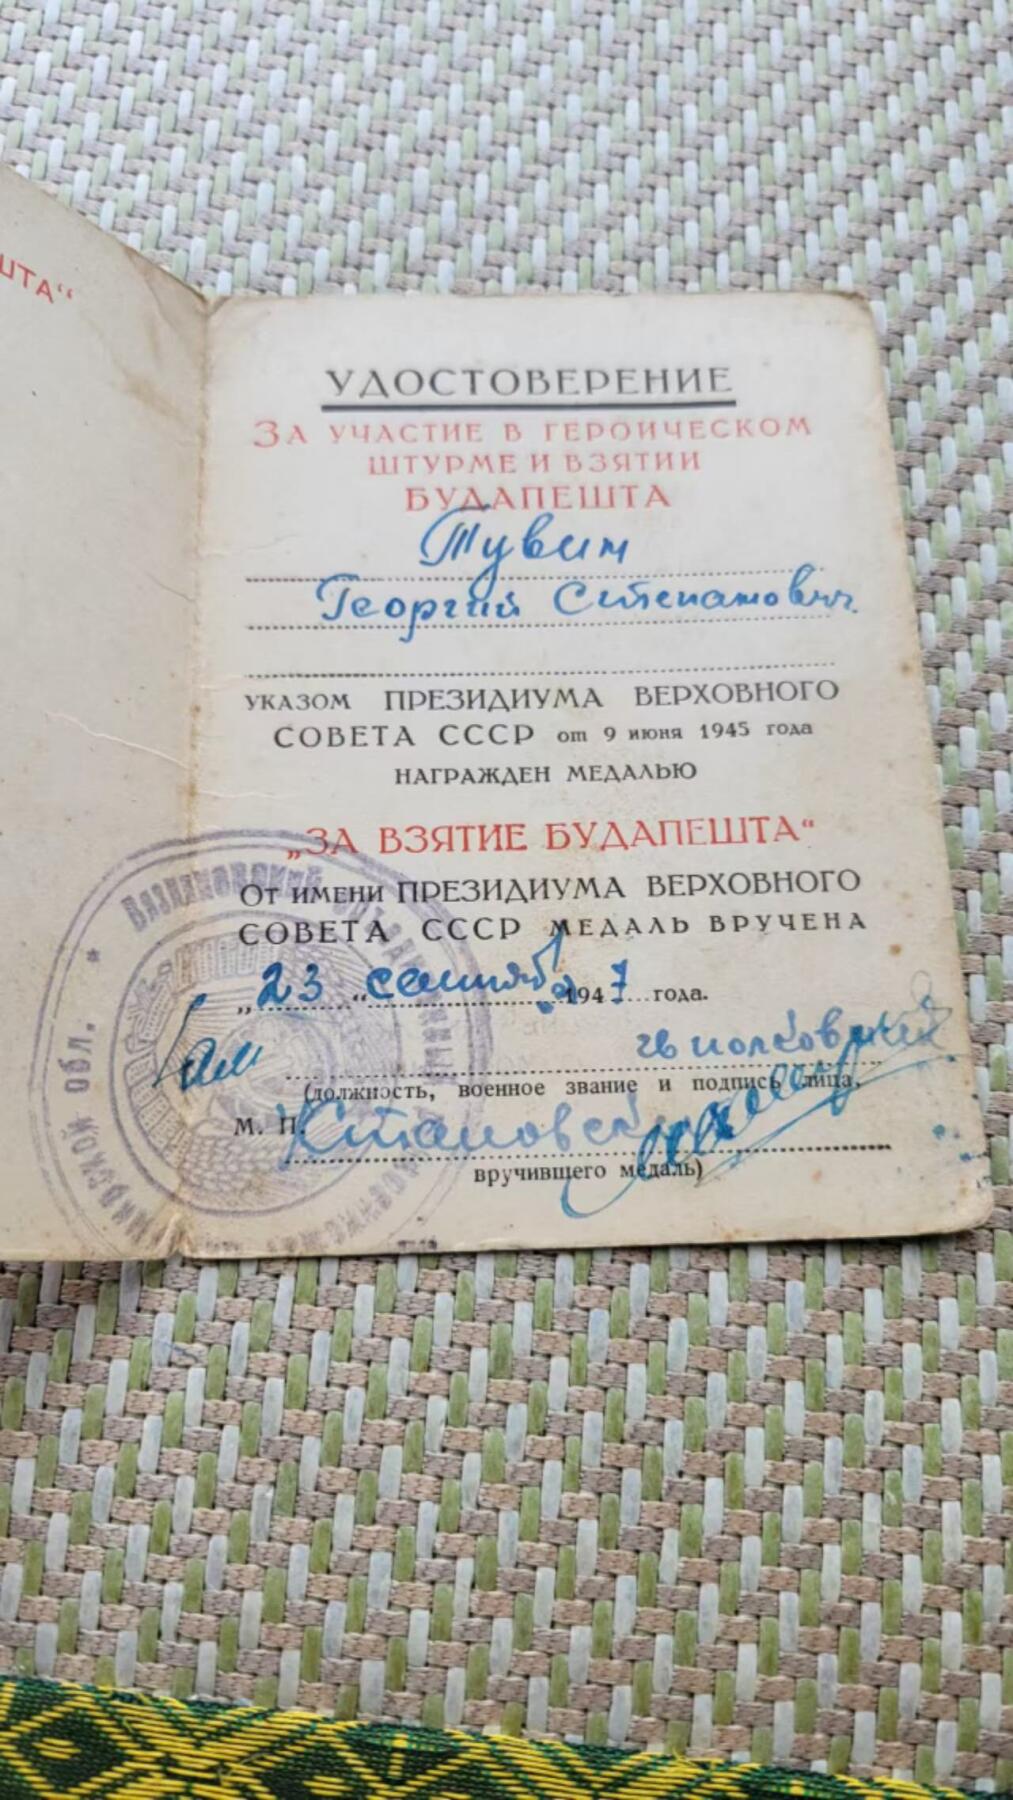 ШТА"
УДОСТОВЕРЕНИЕ
ЗА УЧАСТИЕ В ГЕРОИЧЕСКОМ
ШТУРМЕ И ВЗЯТИИ
БУДАПЕШТА
Тувин
Георгий Степанович
УКАЗОМ ПРЕЗИДИУМА ВЕРХОВНОГО
СОВЕТА СССР от 9 июня 1945 года
НАГРАЖДЕН МЕДАЛЬЮ
„ЗА ВЗЯТИЕ БУДАПЕШТА“
ОТ ИМЕНИ ПРЕЗИДИУМА ВЕРХОВНОГО
СОВЕТА СССР МЕДАЛЬ ВРУЧЕНА
„23“ сентября 1947 года.
(должность, военное звание и подпись лица,
М. П.
вручившего медаль)
ОБЛ. *